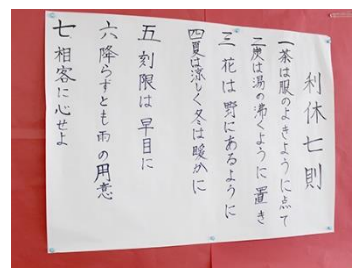 利休七則
一茶は服のよきように点て
二炭は湯の沸くように置き
三 花は野にあるように
四夏は涼しく冬は暖かに
五 刻限は早目に
六 降らずとも雨の用意
七 相客に心せよ